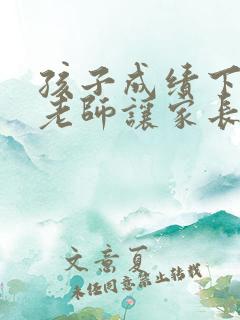 孩子成绩下
老師讓家長
文意夏
未经同意禁止转载